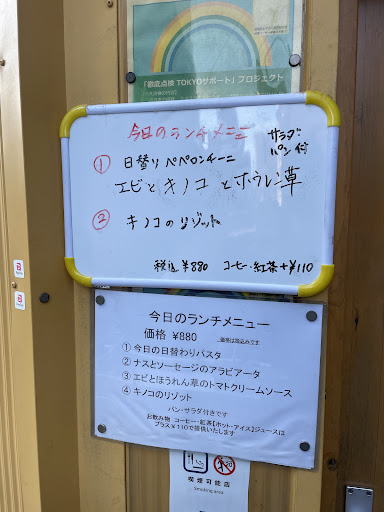 「徹底点検 TOKYOサポート」プロジェクト
今日のランチメニュー
サラダ
パン付
① 日替りペペロンチーニ
エビとキノコとホウレン草
② キノコのリゾット
税込¥880 コーヒー・紅茶+¥110
今日のランチメニュー
価格 ¥880 価格は税込みです
① 今日の日替わりパスタ
② ナスとソーセージのアラビアータ
③ エビとほうれん草のトマトクリームソース
④ キノコのリゾット
パン・サラダ付きです
お飲み物 コーヒー・紅茶【ホット・アイス】ジュースは
プラス¥110で提供いたします
喫煙可能店
Smoking area